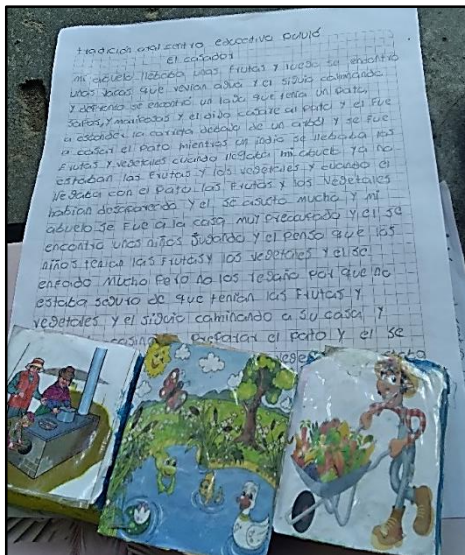 tradición oral centro educativo
el casador
mi abuelo llebaba unas frutas y luego se encontro
unas vacas que vevian agua y el siguio caminando
y defrente se encontró un lago que tenia un pato,
sapos, y maripodas y el dijo casare al pato y el fue
a esconder la carreta debajo de un arbol y se fue
a casar el pato mientras un indio se llebaba las
frutas y vegetales cuando llegaba mi abuelo ya no
estaban las frutas y los vegetales y cuando el
llegaba con el pato las frutas y los vegetales
habian desaparecido y el se asusto mucho y mi
abuelo se fue a la casa muy Precupado y el se
encontro unos niños Jugando y el penso que los
niños tenian las frutas y los vegetales y el se
enfado mucho Pero no los regaño por que no
estaba seguro de que tenian las frutas y
vegetales y el siguio caminando a su casa y
Preparar el pato y el se